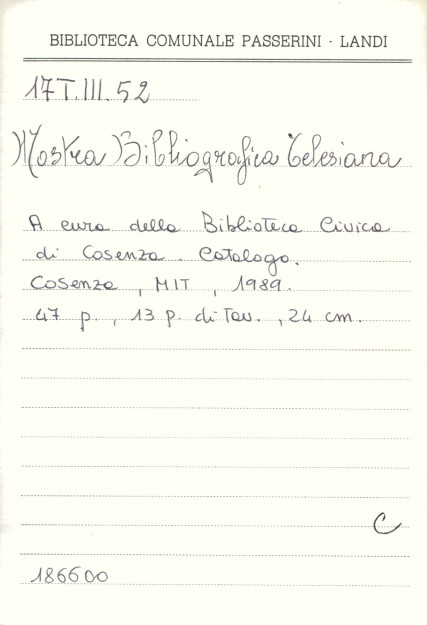 BIBLIOTECA COMUNALE PASSERINI - LANDI
17T.III.52
Mostra Bibliografica Telesiana
A cura della Biblioteca Civica
di Cosenza. Catalogo.
Cosenza, MIT, 1989.
47 p., 13 p. di Tav., 24 cm.
C
186600